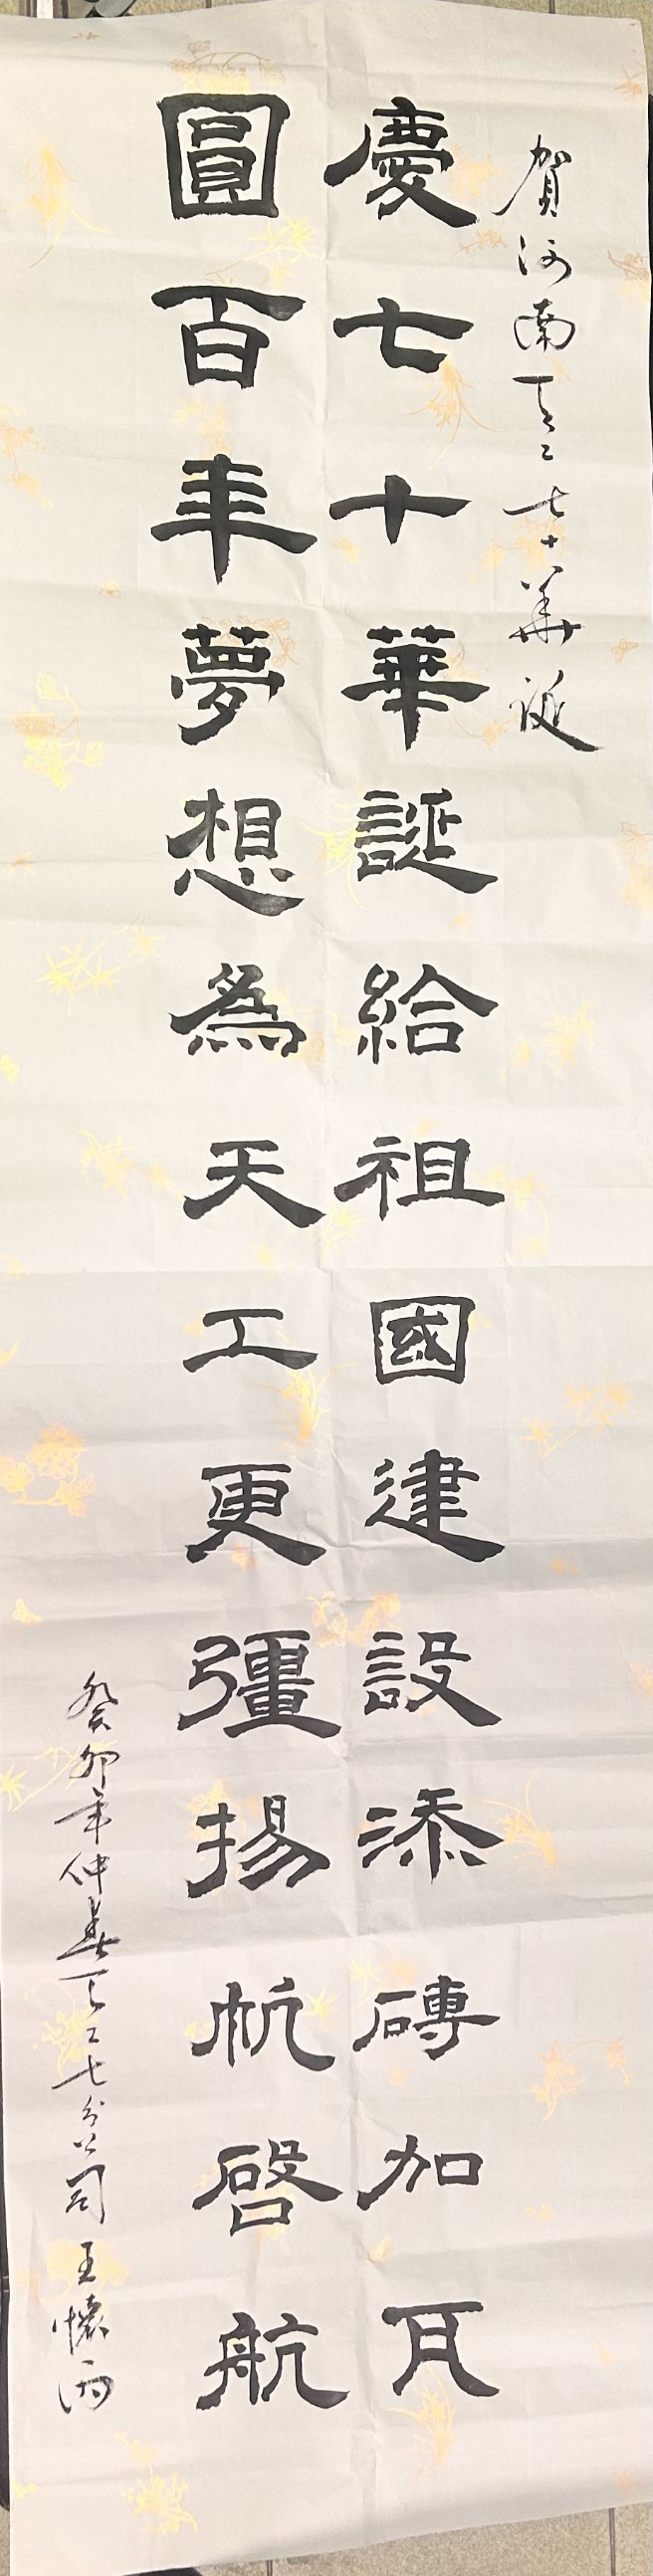 賀河南天工七十華誕
慶七十華誕給祖國建設添磚加瓦
圓百年夢想為天工更彊揚帆啓航
癸卯年仲春天工七分公司王懷雨